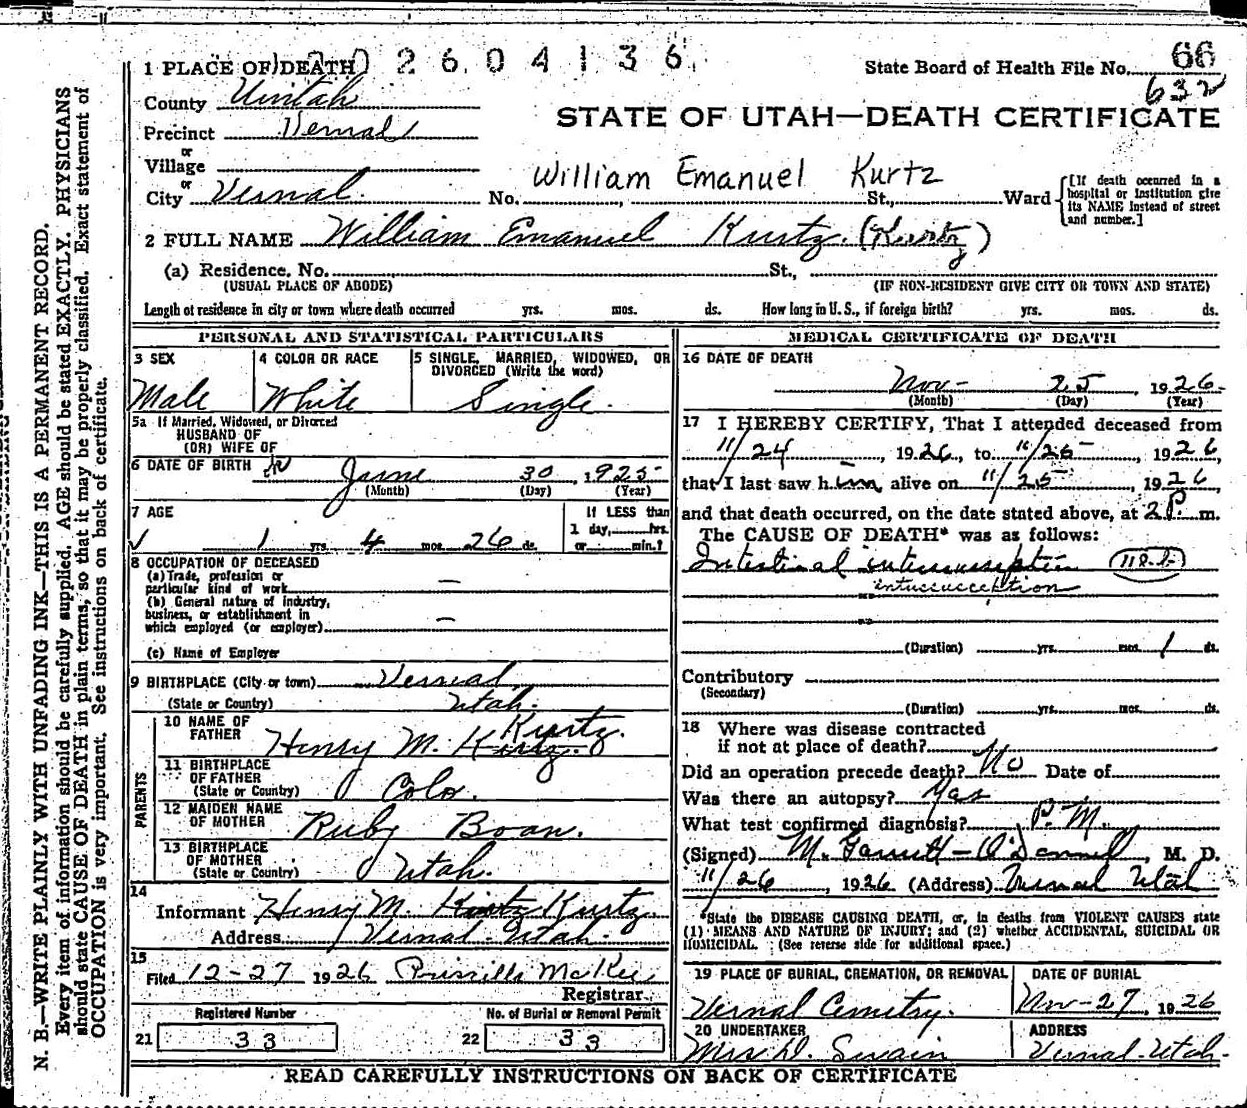 2604136
66
1 PLACE OF DEATH
State Board of Health File No.
632
County Uintah
STATE OF UTAH—DEATH CERTIFICATE
Precinct Vernal
or
Village
or
City Vernal
William Emanuel Kurtz
No. , St., Ward
[If death occurred in a hospital or institution give its NAME instead of street and number.]
2 FULL NAME William Emanuel Kurtz. (Kurtz)
(a) Residence. No. St.,
(USUAL PLACE OF ABODE) (IF NON-RESIDENT GIVE CITY OR TOWN AND STATE)
Length of residence in city or town where death occurred yrs. mos. ds. How long in U. S., if foreign birth? yrs. mos. ds.
PERSONAL AND STATISTICAL PARTICULARS
3 SEX
Male
4 COLOR OR RACE
White
5 SINGLE, MARRIED, WIDOWED, OR DIVORCED (Write the word)
Single.
5a If Married, Widowed, or Divorced
HUSBAND OF
(OR) WIFE OF
6 DATE OF BIRTH June 30, 1925
(Month) (Day) (Year)
7 AGE
1 yrs. 4 mos. 26 ds.
If LESS than
1 day, hrs.
or min.?
8 OCCUPATION OF DECEASED
(a) Trade, profession or
particular kind of work —
(b) General nature of industry,
business, or establishment in
which employed (or employer) —
(c) Name of Employer
9 BIRTHPLACE (City or town) Vernal,
(State or Country) Utah.
PARENTS
10 NAME OF FATHER Henry M. Kurtz. Kurtz.
11 BIRTHPLACE
OF FATHER
(State or Country) Colo.
12 MAIDEN NAME
OF MOTHER Ruby Boan.
13 BIRTHPLACE
OF MOTHER
(State or Country) Utah.
14
Informant Henry M. Kurtz Kurtz.
Address Vernal. Utah.
15
Filed 12-27 1926 Priscilla McKee
Registrar.
Registered Number
21 33
No. of Burial or Removal Permit
22 33
MEDICAL CERTIFICATE OF DEATH
16 DATE OF DEATH
Nov- 25, 1926-
(Month) (Day) (Year)
17 I HEREBY CERTIFY, That I attended deceased from
11/24, 1926, to 11/25, 1926,
that I last saw him alive on 11/25, 1926,
and that death occurred, on the date stated above, at 2 P. m.
The CAUSE OF DEATH* was as follows:
Intestinal intussusseption
intussusception
(Duration) yrs. mos. 1 ds.
Contributory
(Secondary)
(Duration) yrs. mos. ds.
18 Where was disease contracted
if not at place of death?
Did an operation precede death? No Date of
Was there an autopsy? Yas
What test confirmed diagnosis? P. M.
(Signed) M. Garnett-O'Donnell, M. D.
11/26, 1926 (Address) Vernal Utah
*State the DISEASE CAUSING DEATH, or, in deaths from VIOLENT CAUSES state
(1) MEANS AND NATURE OF INJURY; and (2) whether ACCIDENTAL, SUICIDAL OR
HOMICIDAL. (See reverse side for additional space.)
19 PLACE OF BURIAL, CREMATION, OR REMOVAL
Vernal Cemetry.
DATE OF BURIAL
Nov-27, 1926
20 UNDERTAKER
Mrs D. Swain
ADDRESS
Vernal-Utah-
READ CAREFULLY INSTRUCTIONS ON BACK OF CERTIFICATE
N. B.—WRITE PLAINLY WITH UNFADING INK—THIS IS A PERMANENT RECORD.
Every item of information should be carefully supplied. AGE should be stated EXACTLY. PHYSICIANS
should state CAUSE OF DEATH in plain terms, so that it may be properly classified. Exact statement of
OCCUPATION is very important. See instructions on back of certificate.